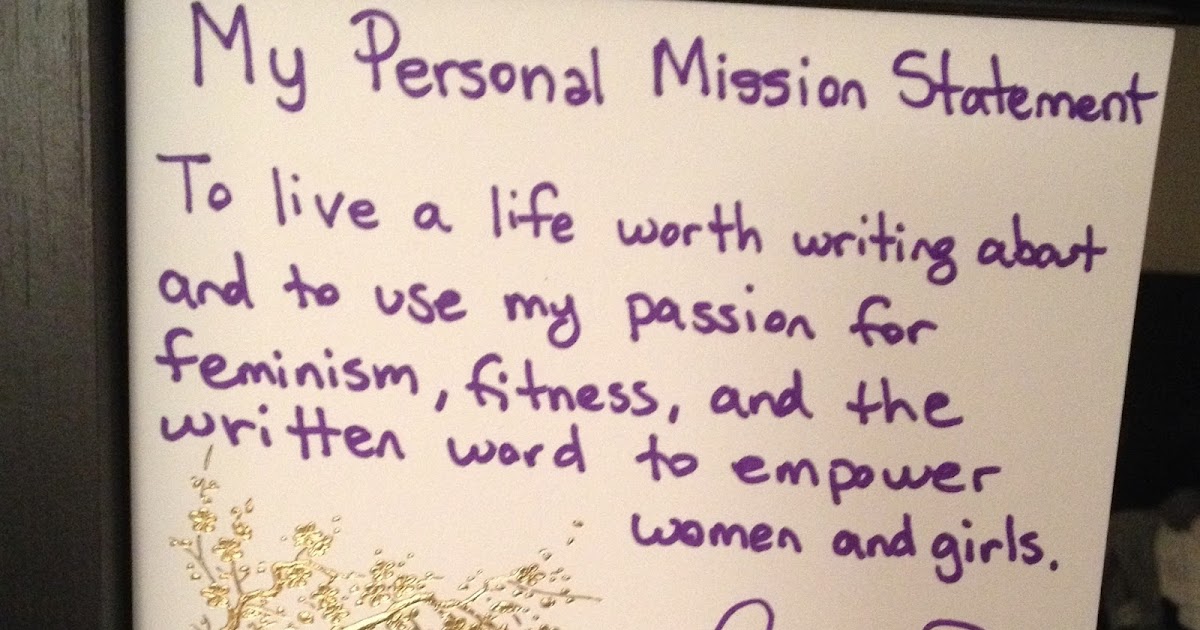 My Personal Mission Statement
To live a life worth writing about
and to use my passion for
feminism, fitness, and the
written word to empower
women and girls.